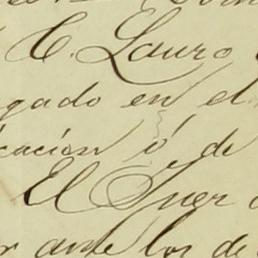 C. Lauro
gado en el
cación ó de
El Juez
r ante los de